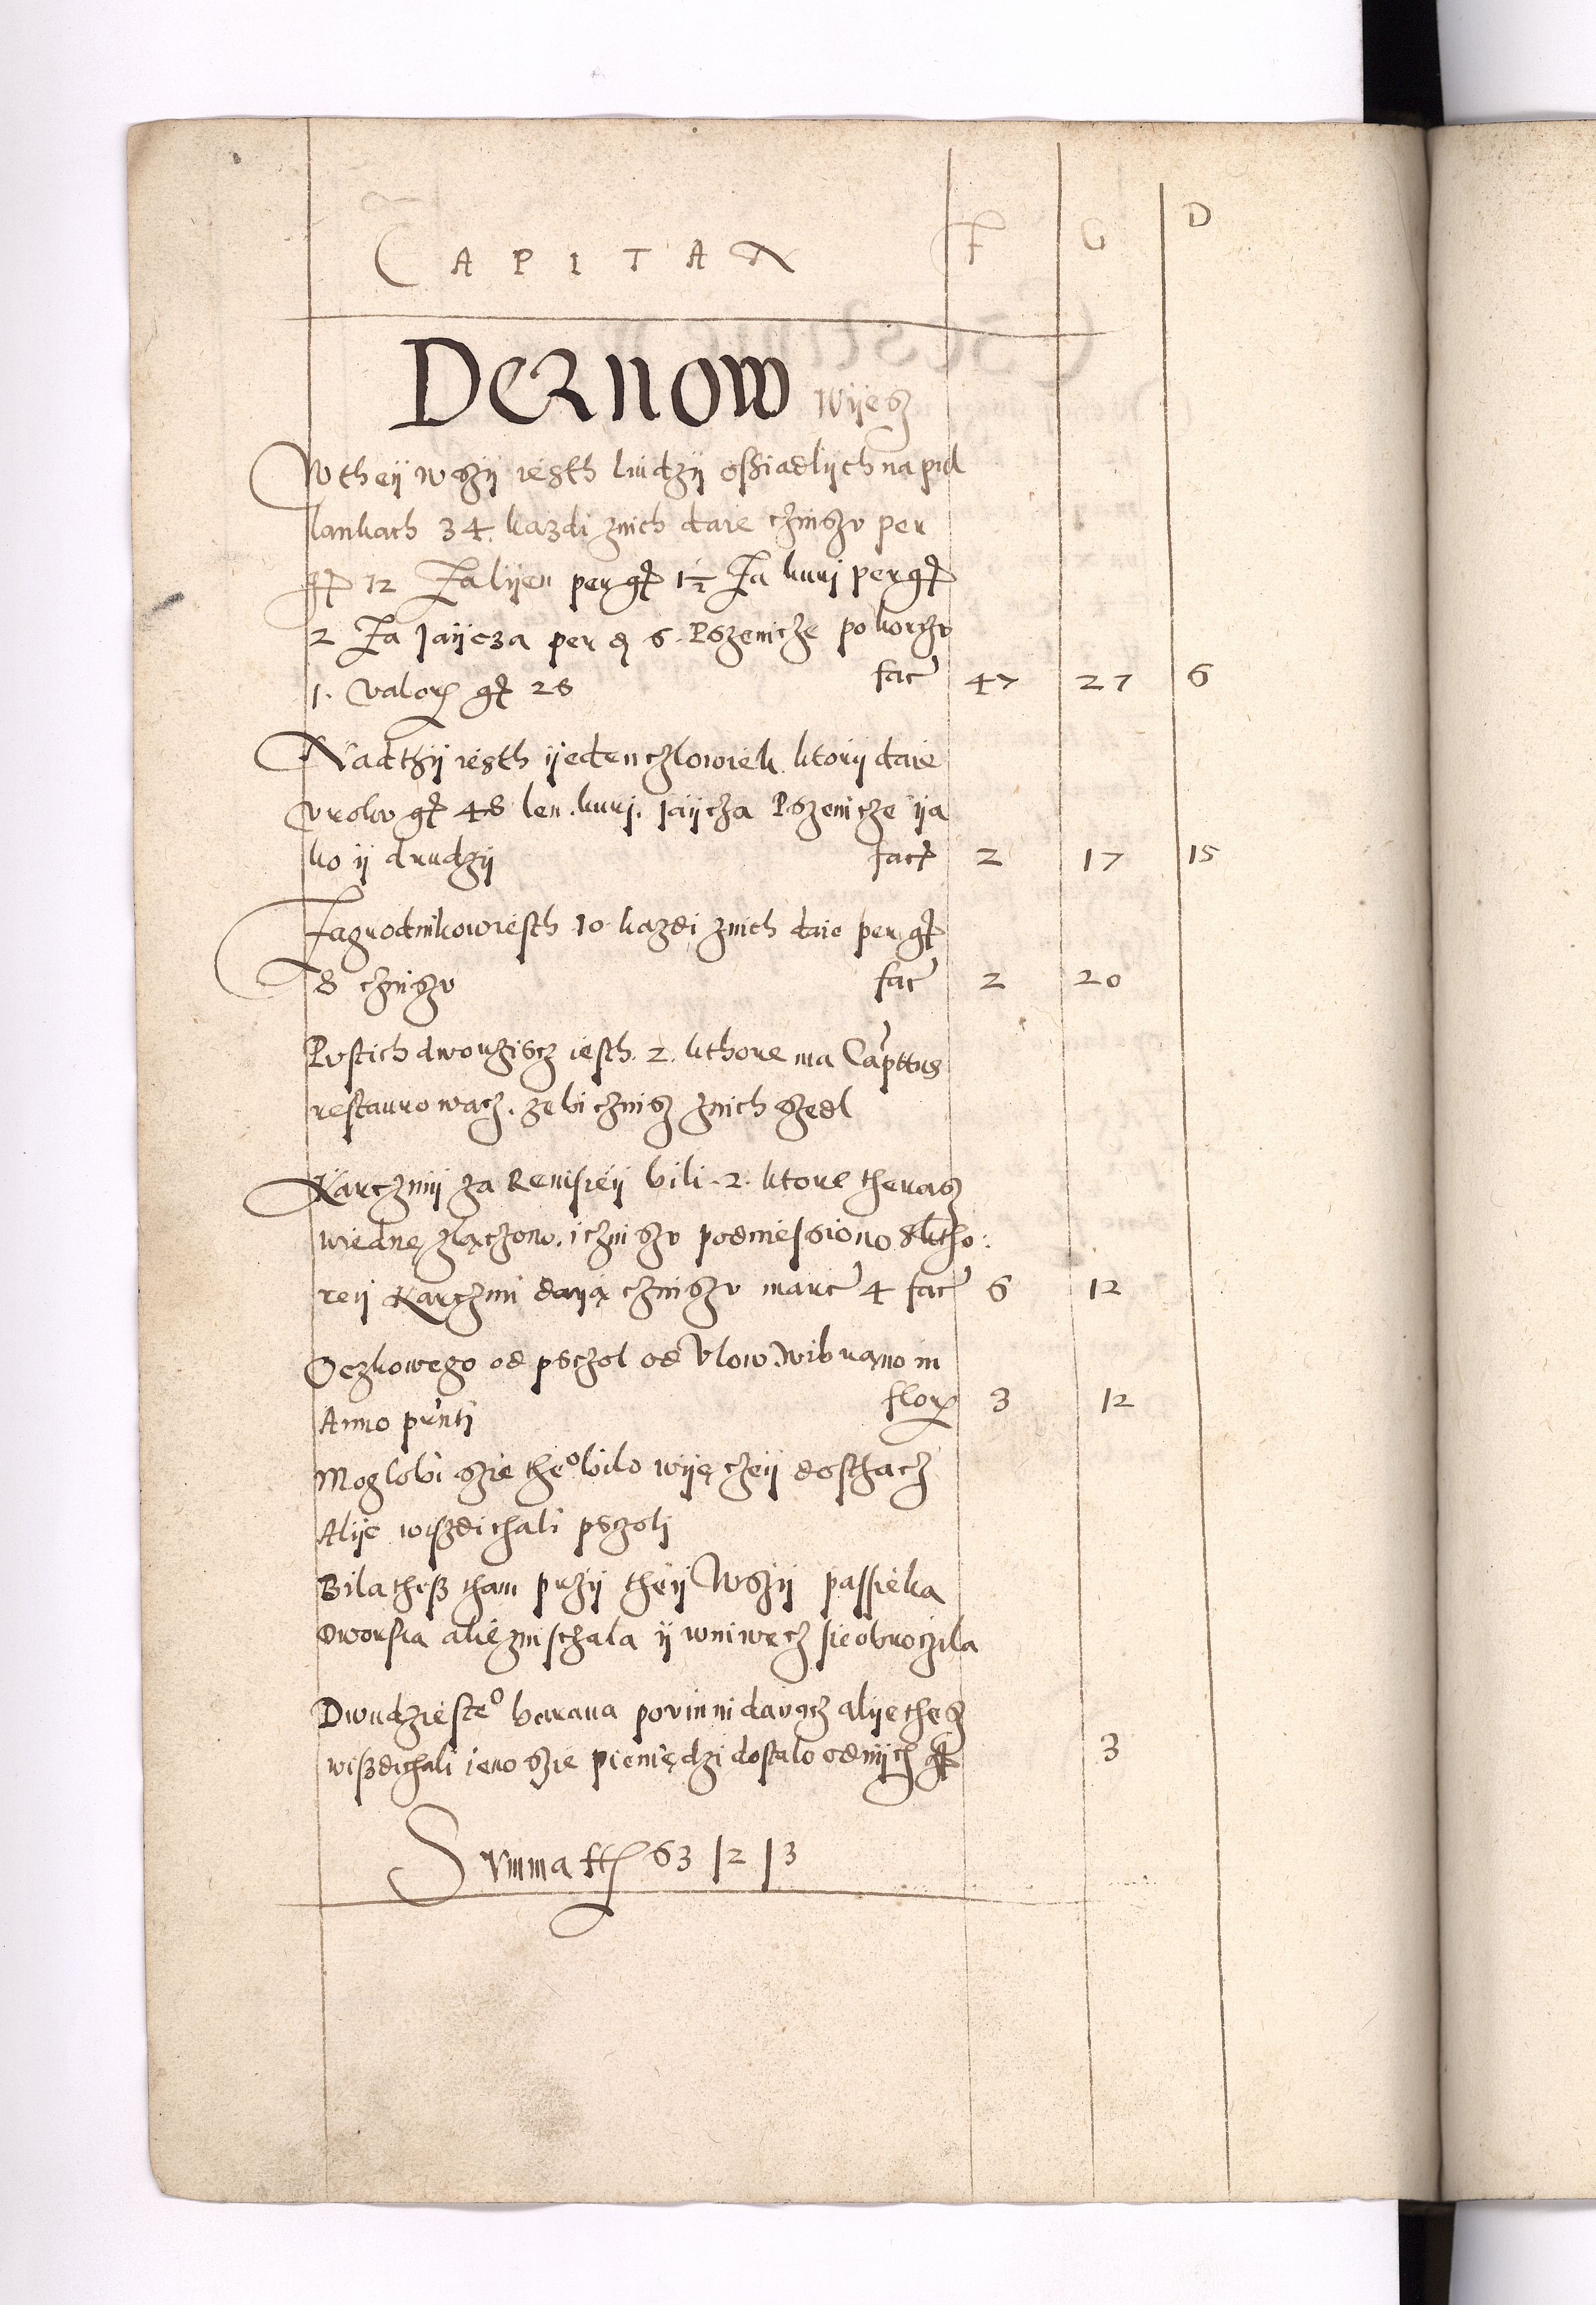 CAPITAN F G D
DERNOW Wijesz
W theij wszij iesth liudzij ossiadlijch na pul
lankach 34. kazdi znich daie czinszv per
gr 12 Za lijen per gr 1½ Za kurj per gr
2 Za Jaijcza per d 6. Pszenicze po korczv
1. valoris gr 26 fac 47 27 6
Nadthij iesth ijeden czlowiek ktorij daie
vrokv gr 48 len. kurj. Jaijcza Pszenicze ija
ko ij drudzij fact 2 17 15
Zagrodnikow iesth 10 kazdi znich daie per gr
8 czinszv fac 2 20
Pvstich dworziscz iesth. 2. kthore ma Capttus
restaurowacz. zebi czinsz znich szedl
Karczmij za Rewisieij bili. 2. ktore theraz
wiednę zlączono. i czinszv podniessiono s ktho:
reij Karczmi daiją czinszv marc 4 fac 6 12
Oczkowego od pszczol od Vlow wibrano in
Anno prnti flor 3 12
Moglobi szie the° bilo wijęczeij dosthacz
Alije wiszdichali pszolj
Bila thesz tham przij theij Wszij passieka
Dworska alie znisczala ij wniwecz sie obroczila
Dwudzieste° barana powinni dawacz alije thesz
wiszdichali ieno szie pieniędzi dostalo od nijch gr 3
Svmma ff 63 | 2 | 3